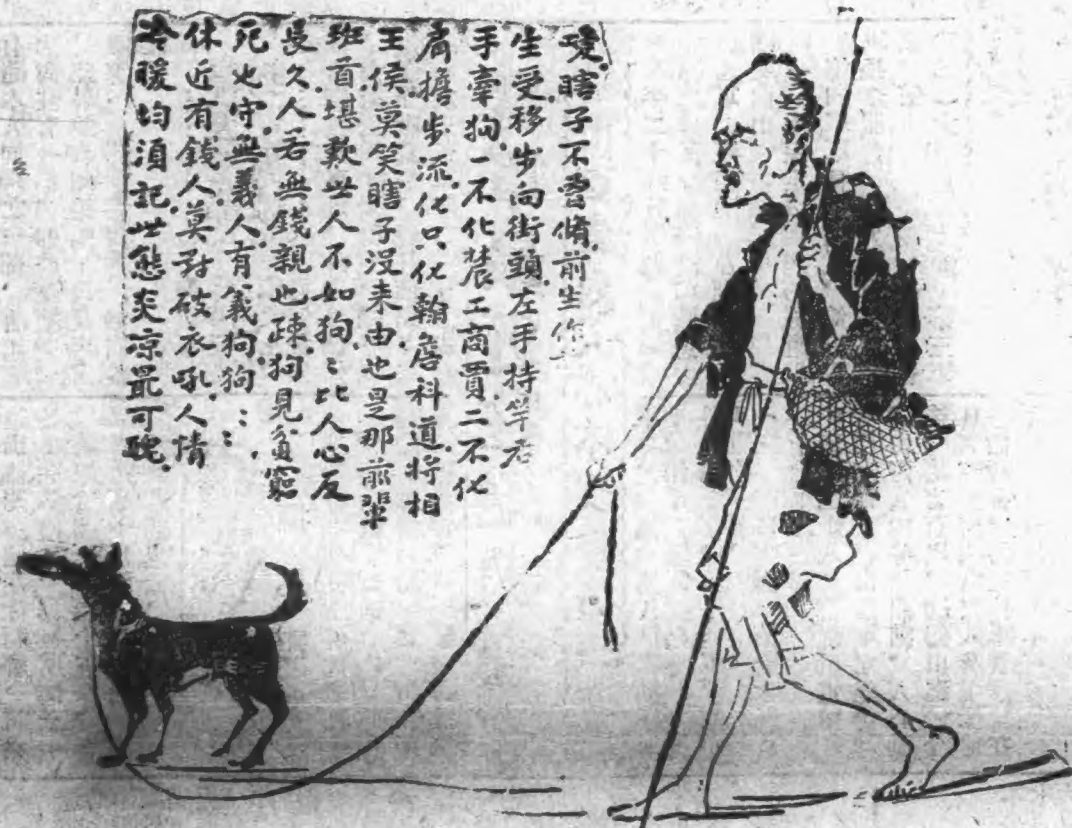 嘆瞎子不曾脩前生作
生受移步向街頭左手持竿右
手牽狗一不化農工商賈二不化
肩擔步流化只化翰詹科道將相
王侯莫笑瞎子沒來由也是那前輩
班首堪歎世人不如狗狗:比人心反
長久人若無錢親也疎狗見貧窮
死也守無義人有義狗狗::
休近有錢人莫對破衣吼人情
冷暖均須記世態炎凉最可醜